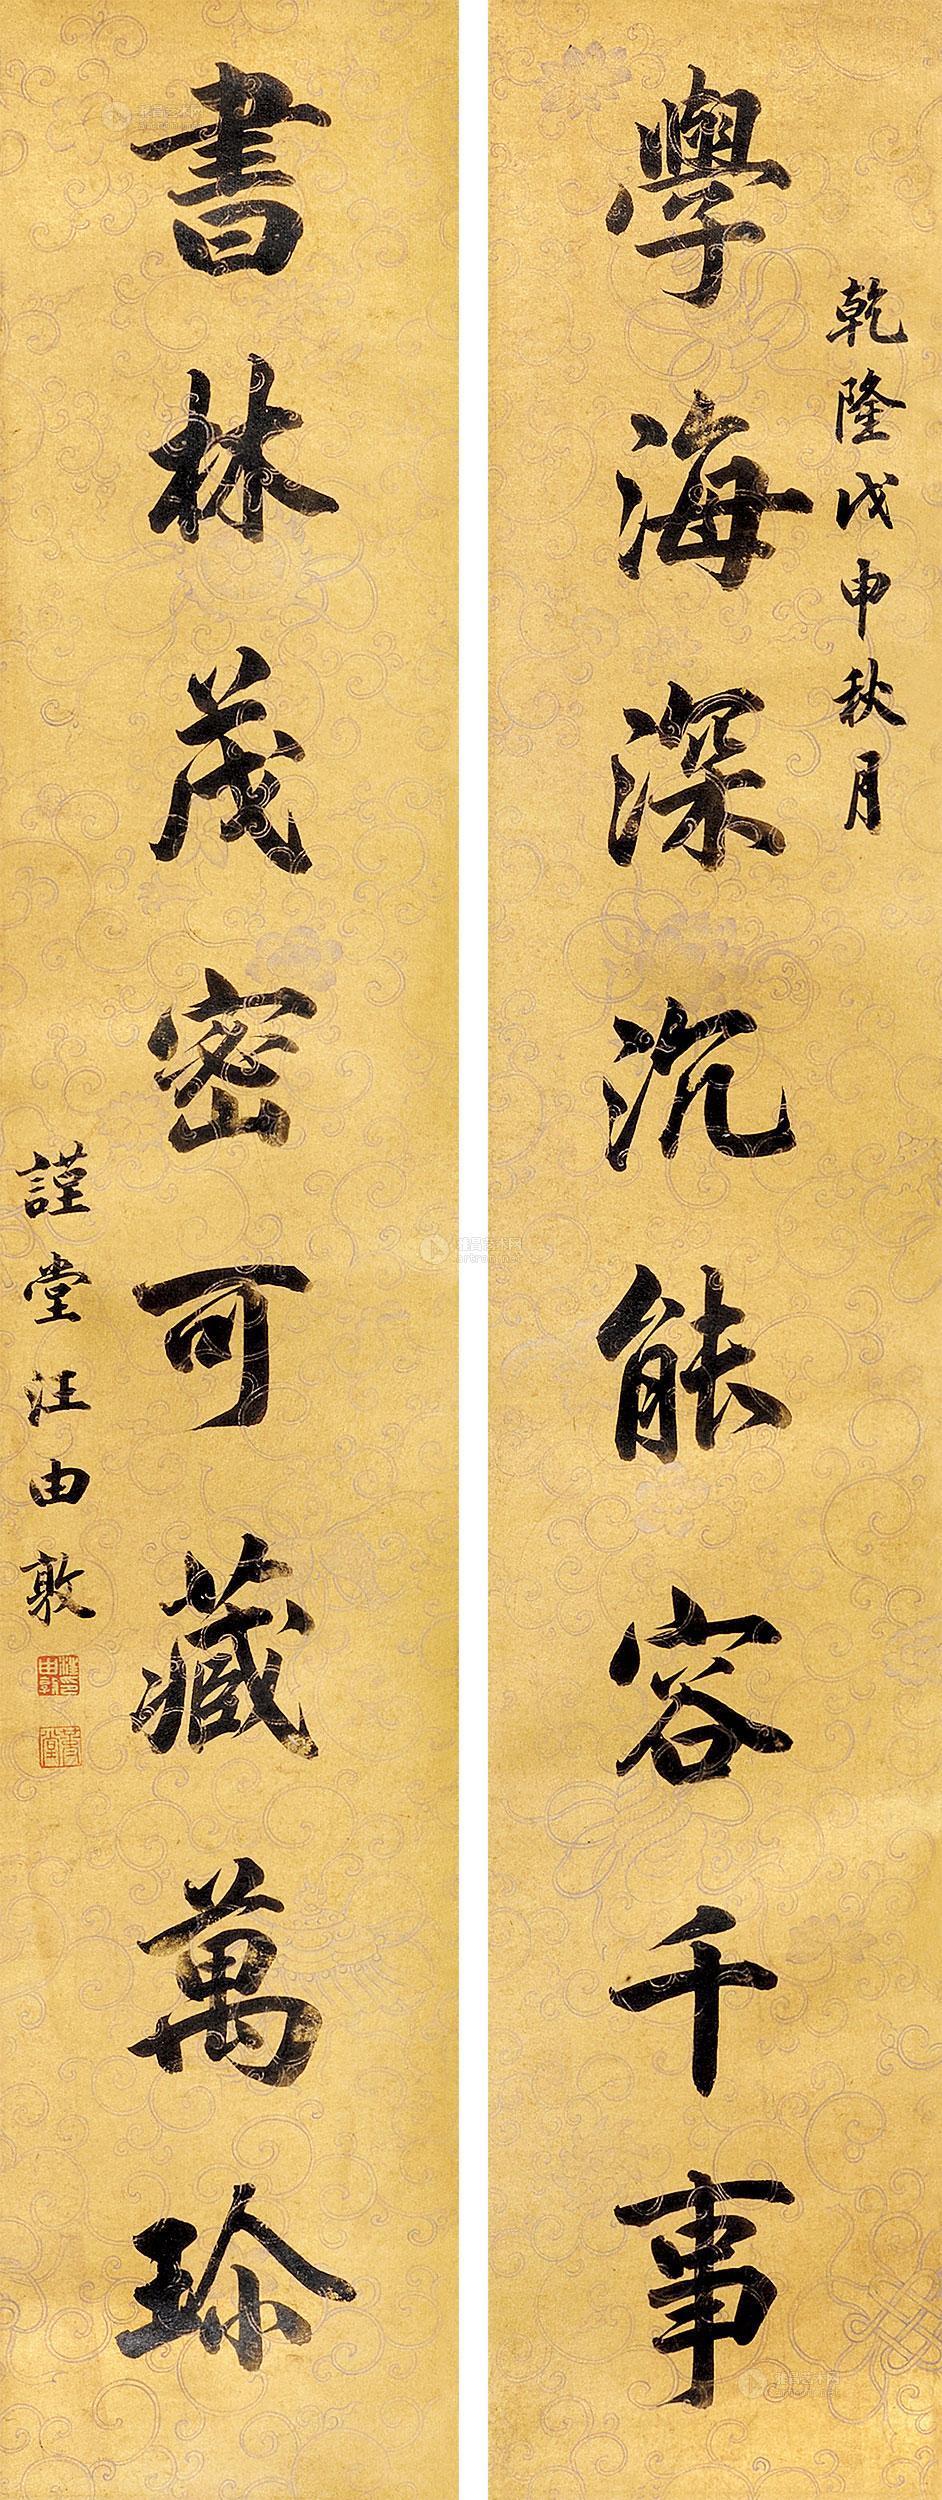 乾隆戊申秋月
學海深沉能容千事
書林茂密可藏萬珎
謹堂汪由敦